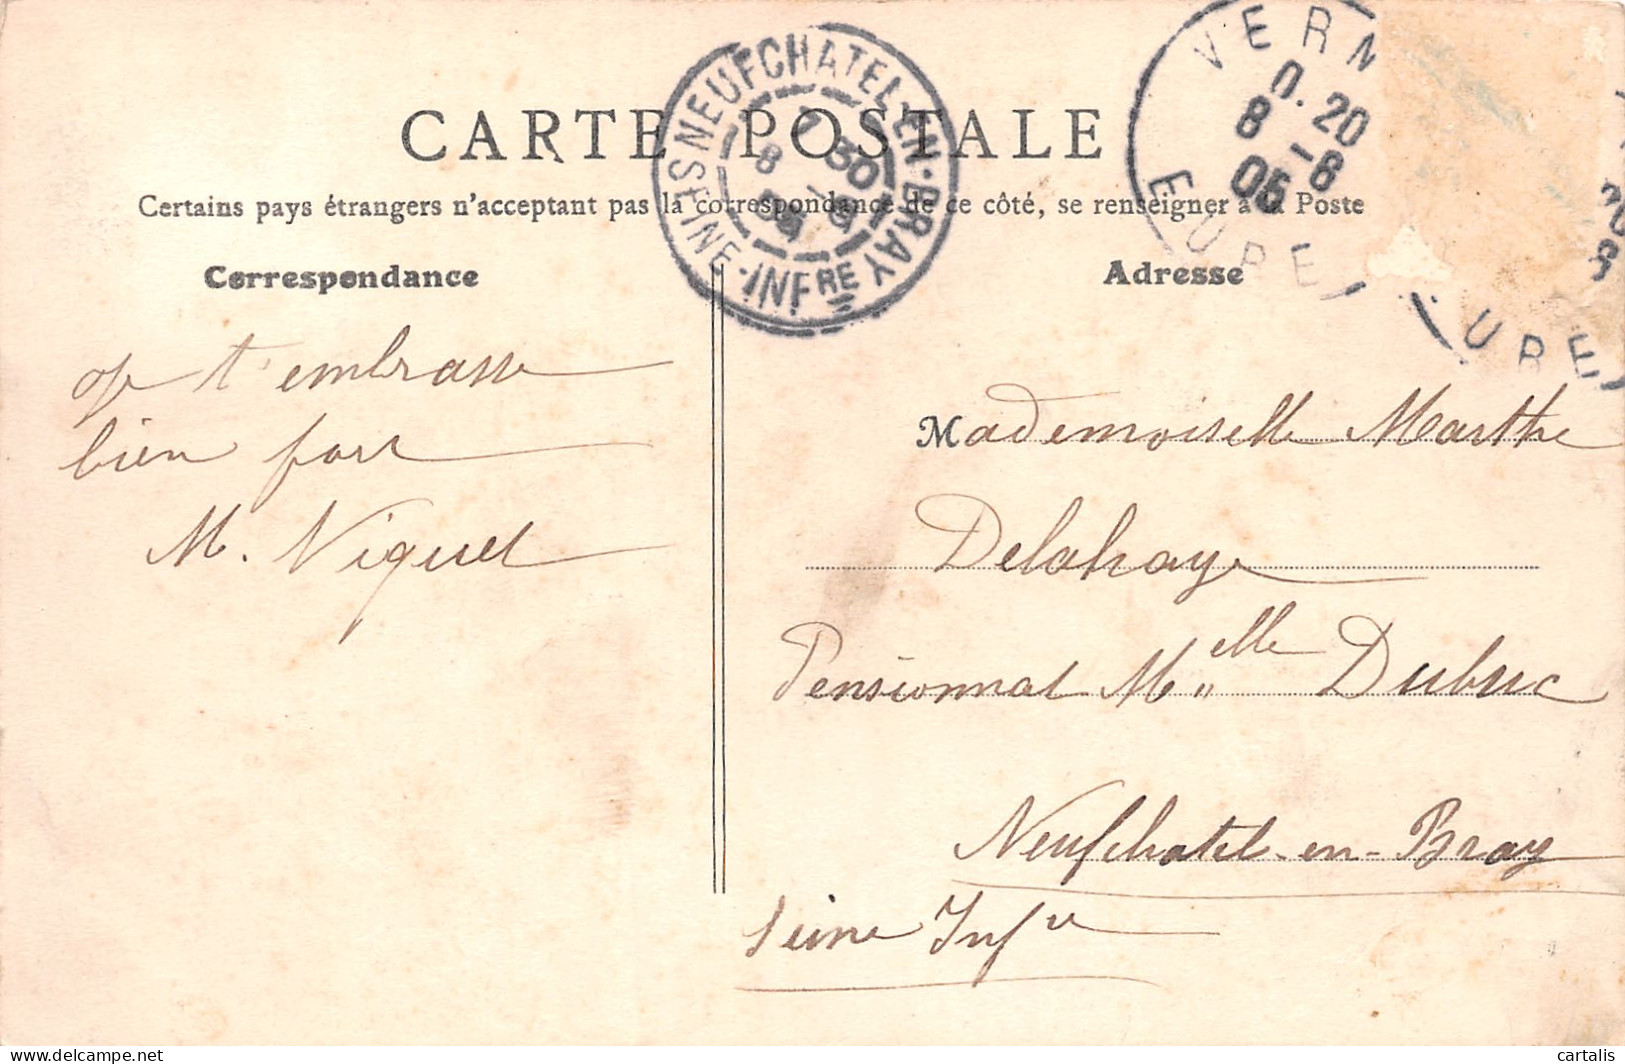 CARTE POSTALE
Certains pays étrangers n'acceptent pas la correspondance de ce côté, se renseigner à la Poste
Correspondance
Adresse
NEUFCHATEL-EN-BRAY
SEINE-INFRE
VERN
EURE
URE
Je t'embrasse
bien fort
M. Viquet
Mademoiselle Marthe
Delahaye
Pensionnat Melle Dubuc
Neufchatel-en-Bray
Seine Infre
cartalis
www.delcampe.net